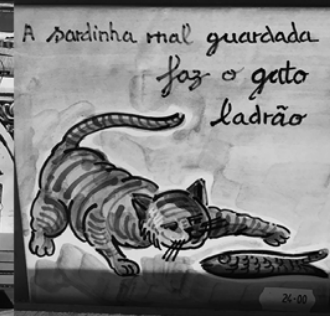 A sardinha mal guardada
faz o gato
ladrão
24-00